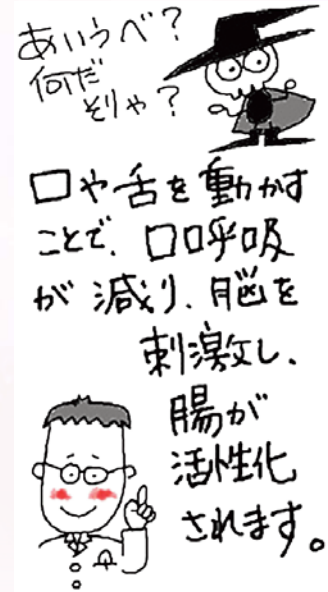 あいうべ?
何だ
そりゃ?
口や舌を動かす
ことで、口呼吸
が減り、脳を
刺激し、
腸が
活性化
されます。